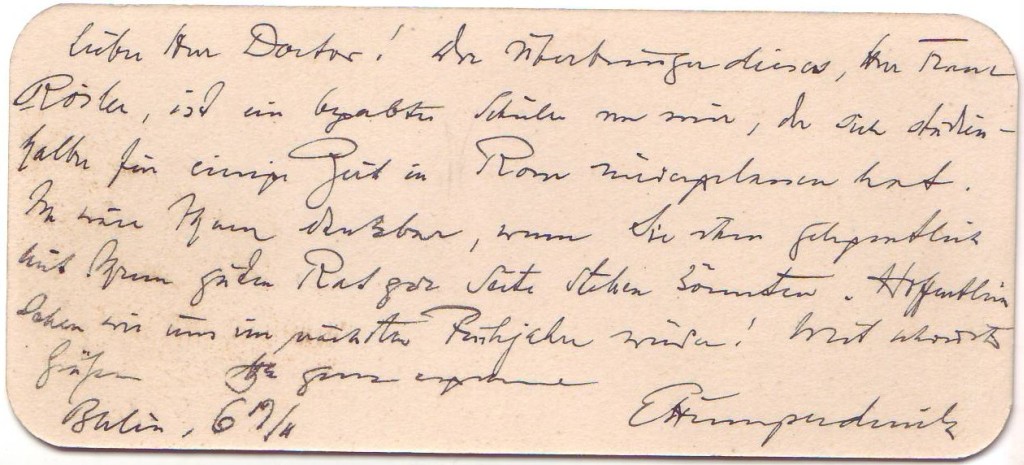 Lieber Herr Doctor! Der Überbringer dieses, Herr Franz
Rösler, ist ein begabter Schüler von mir, der sich studien-
halber für einige Zeit in Rom niedergelassen hat.
Ich wäre Ihnen dankbar, wenn Sie ihm gelegentlich
mit Ihrem guten Rat zur Seite stehen könnten. Hoffentlich
sehen wir uns im nächsten Frühjahr wieder! Mit
Grüßen Ihr ganz ergebener
Berlin, 6
EHumperdinck